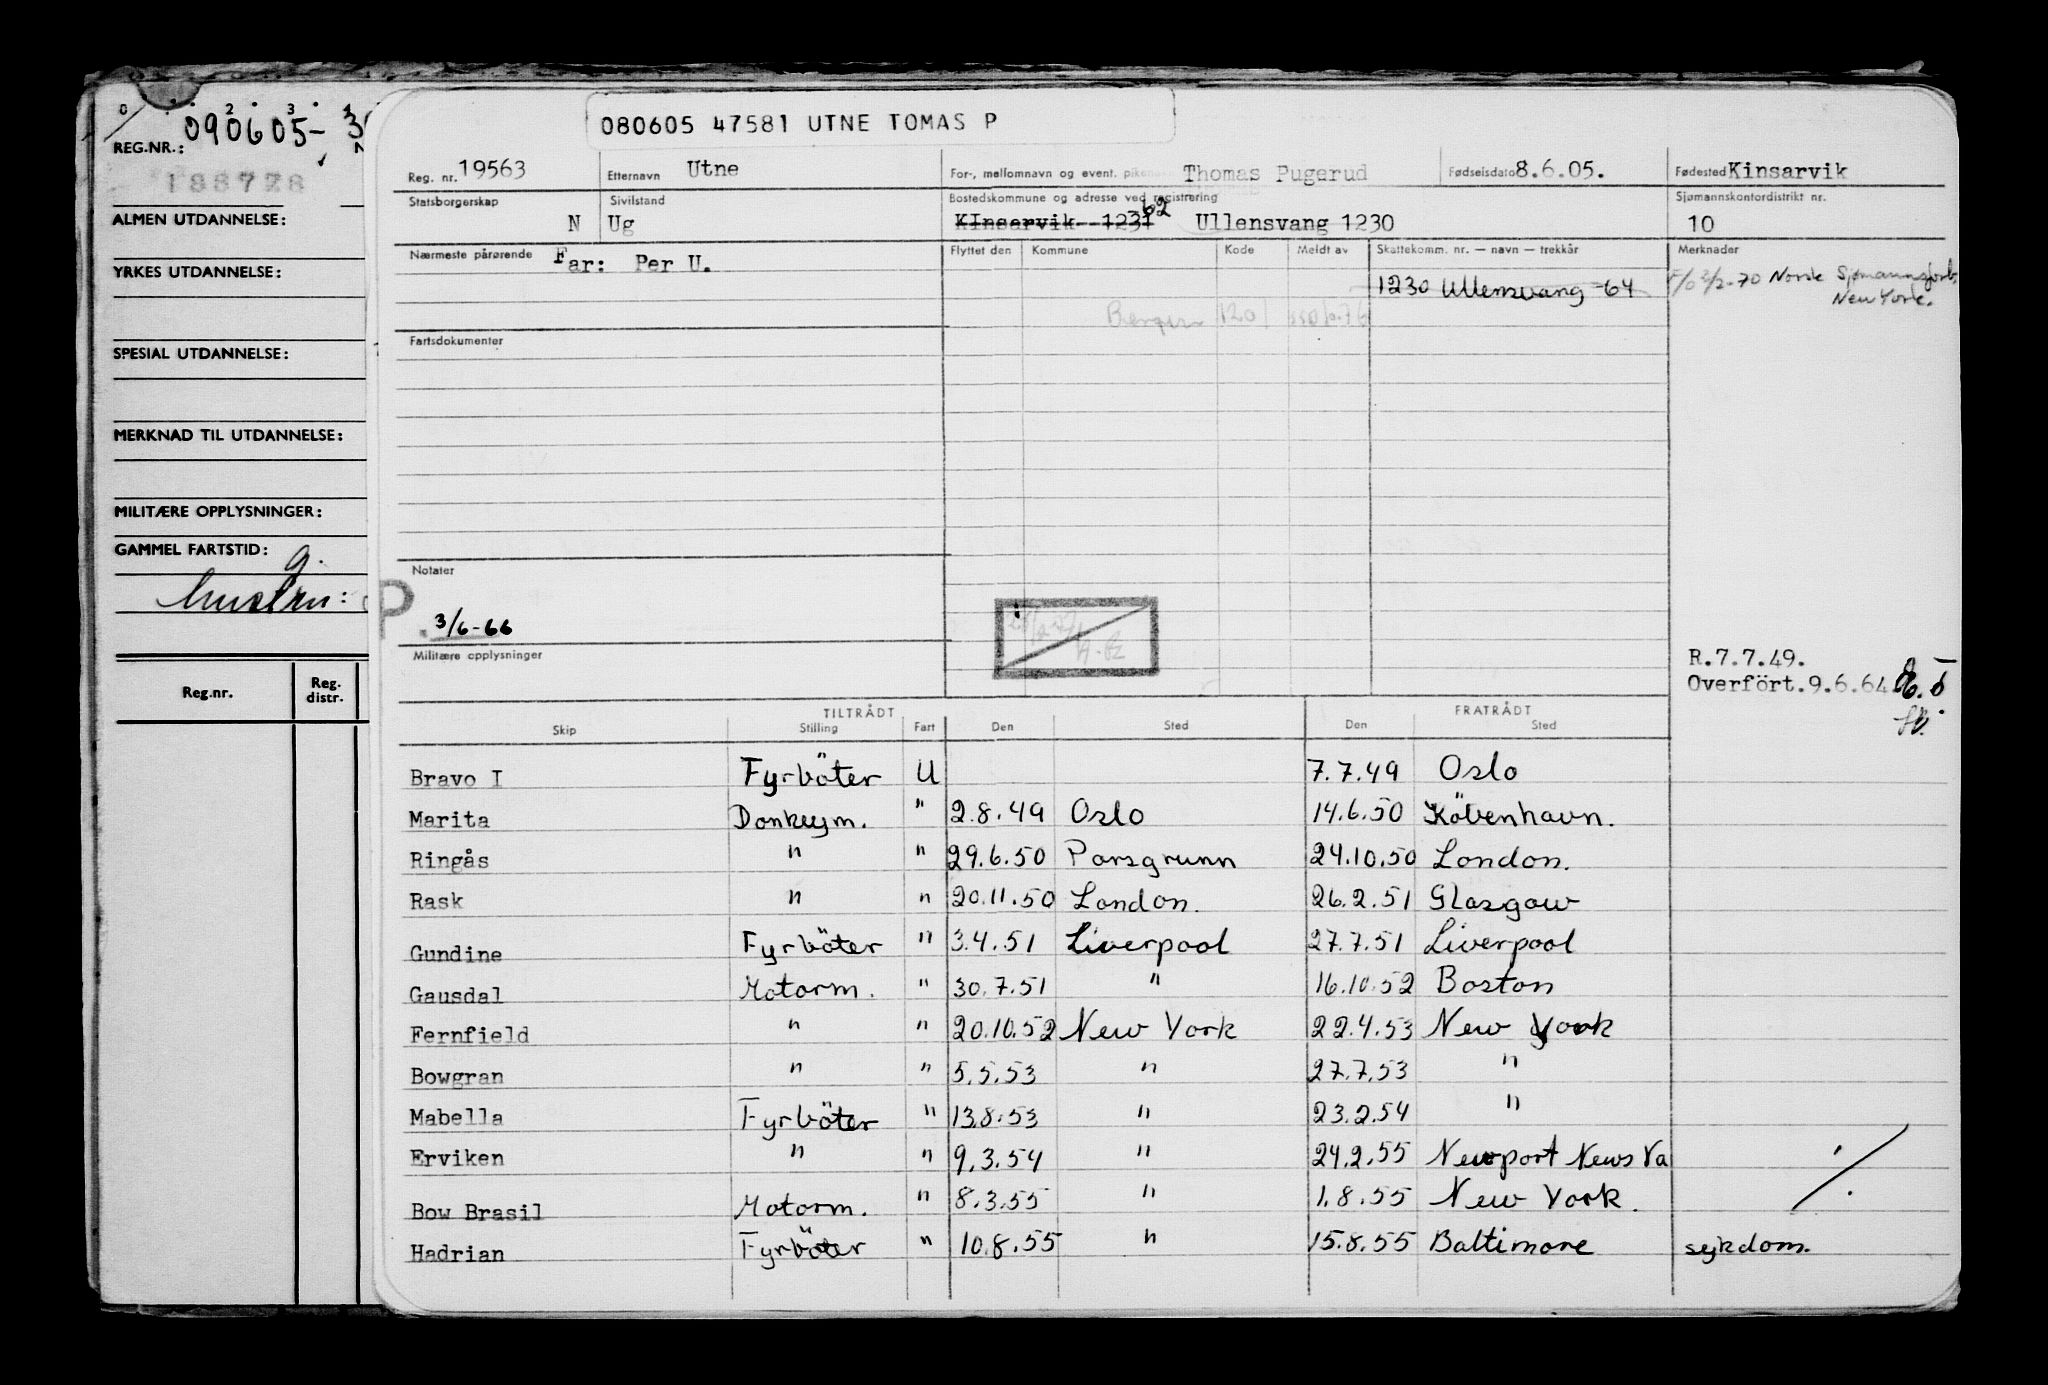 REG.NR.: 090605-
188728
ALMEN UTDANNELSE:
YRKES UTDANNELSE:
SPESIAL UTDANNELSE:
MERKNAD TIL UTDANNELSE:
MILITÆRE OPPLYSNINGER:
GAMMEL FARTSTID:
Reg.nr. Reg. distr.
080605 47581 UTNE TOMAS P
Reg. nr. 19563 Etternavn Utne For-, mellomnavn og event. Thomas Pugerud Fødselsdato 8.6.05. Fødested Kinsarvik
Statsborgerskap Sivilstand Bostedskommune og adresse ved registrering Sjømannskontordistrikt nr.
N Ug KInsarvik 1231 62 Ullensvang 1230 10
Nærmeste pårørende Far: Per U. Flyttet den Kommune Kode Meldt av Skattekomm. nr. — navn — trekkår Merknader
1230 Ullensvang -64 Norsk Sjømannsforb.
New York.
Bergen 1201
Fartsdokumenter
Notater
P. 3/6-66
Militære opplysninger
R.7.7.49.
Overfört.9.6.64
TILTRÅDT FRATRÅDT
Skip Stilling Fart Den Sted Den Sted
Bravo I Fyrböter U 7.7.49 Oslo
Marita Donkeym. " 2.8.49 Oslo 14.6.50 Köbenhavn.
Ringås " " 29.6.50 Porsgrunn 24.10.50 London.
Rask " " 20.11.50 London. 26.2.51 Glasgow
Gundine Fyrböter " 3.4.51 Liverpool 27.7.51 Liverpool
Gausdal Motorm. " 30.7.51 " 16.10.52 Boston
Fernfield " " 20.10.52 New York 22.4.53 New York
Bowgran " " 5.5.53 " 27.7.53 "
Mabella Fyrböter " 13.8.53 " 23.2.54 "
Erviken " " 9.3.54 " 24.2.55 Newport News Va
Bow Brasil Motorm. " 8.3.55 " 1.8.55 New York.
Hadrian Fyrböter " 10.8.55 " 15.8.55 Baltimore sykdom.